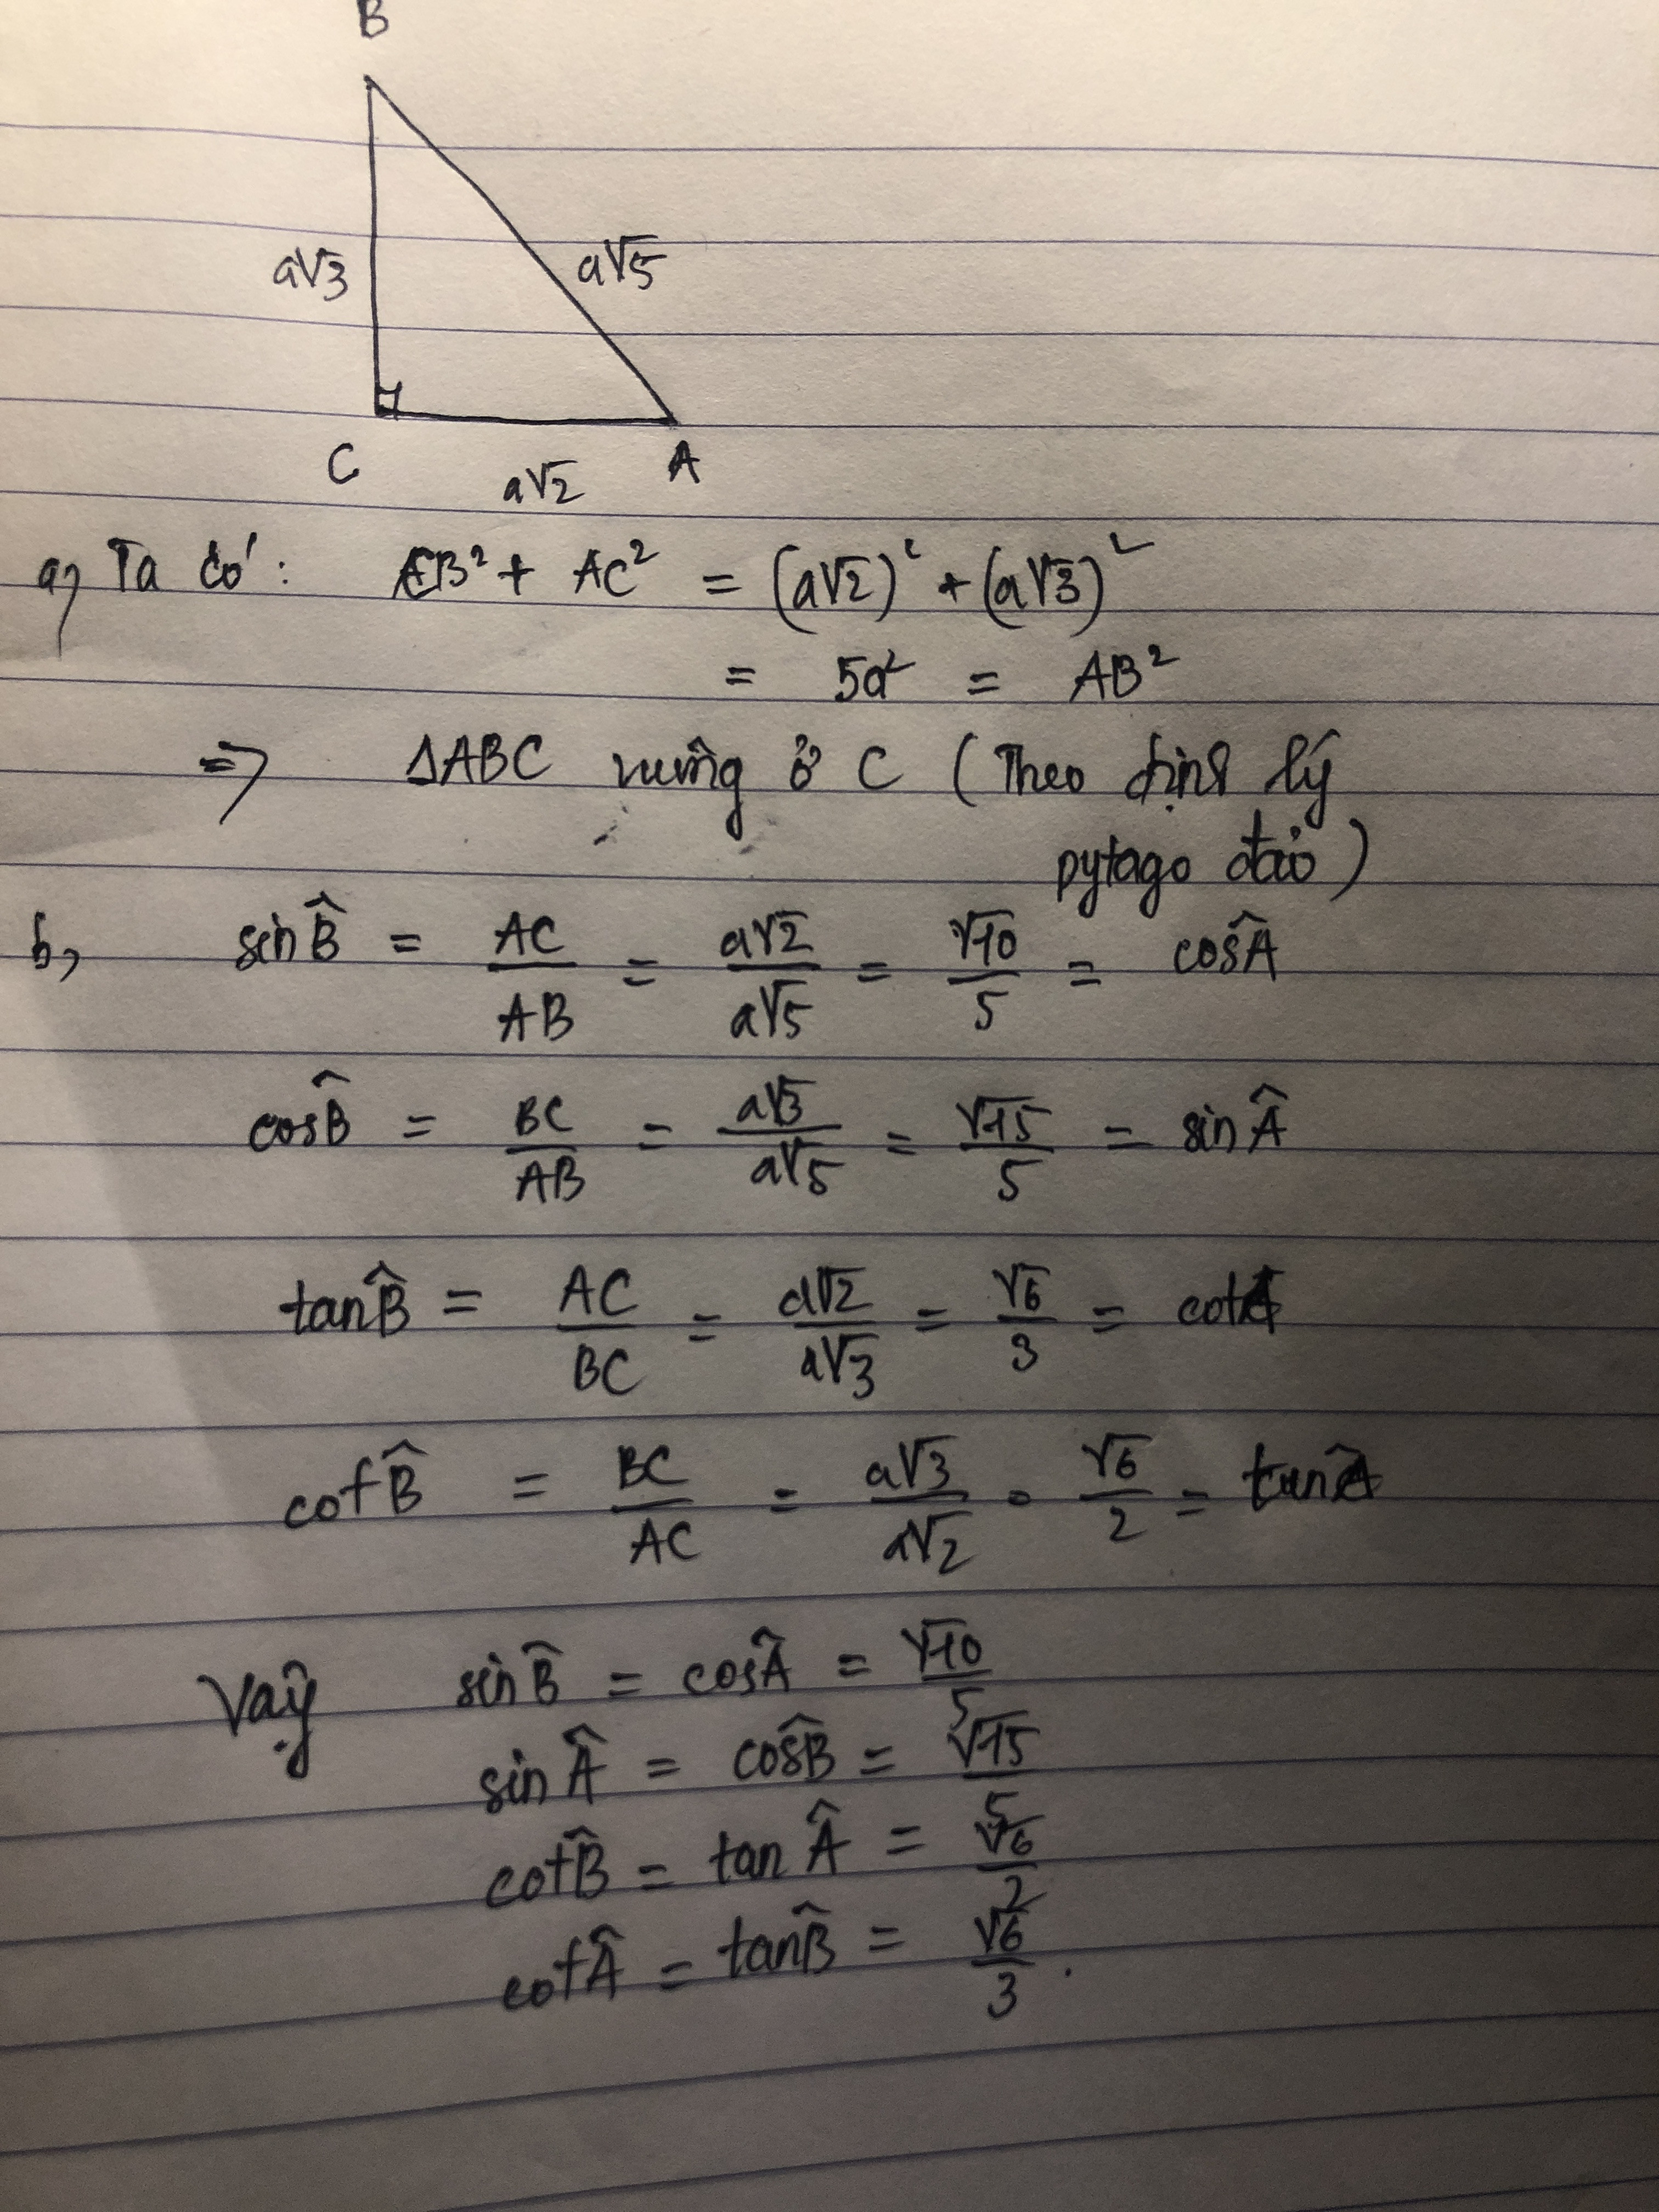 B
a√3
a√5
C
A
a√2
a, Ta có: CB² + AC² = (a√2)² + (a√3)²
= 5a² = AB²
=> ΔABC vuông ở C (Theo định lý
pytago đảo)
b, sin B̂ = AC/AB = a√2/a√5 = √10/5 = cos Â
cos B̂ = BC/AB = a√3/a√5 = √15/5 = sin Â
tan B̂ = AC/BC = a√2/a√3 = √6/3 = cot A
cot B̂ = BC/AC = a√3/a√2 = √6/2 = tan Â
Vậy sin B̂ = cos Â = √10/5
sin Â = cos B̂ = √15/5
cot B̂ = tan Â = √6/2
cot Â = tan B̂ = √6/3.